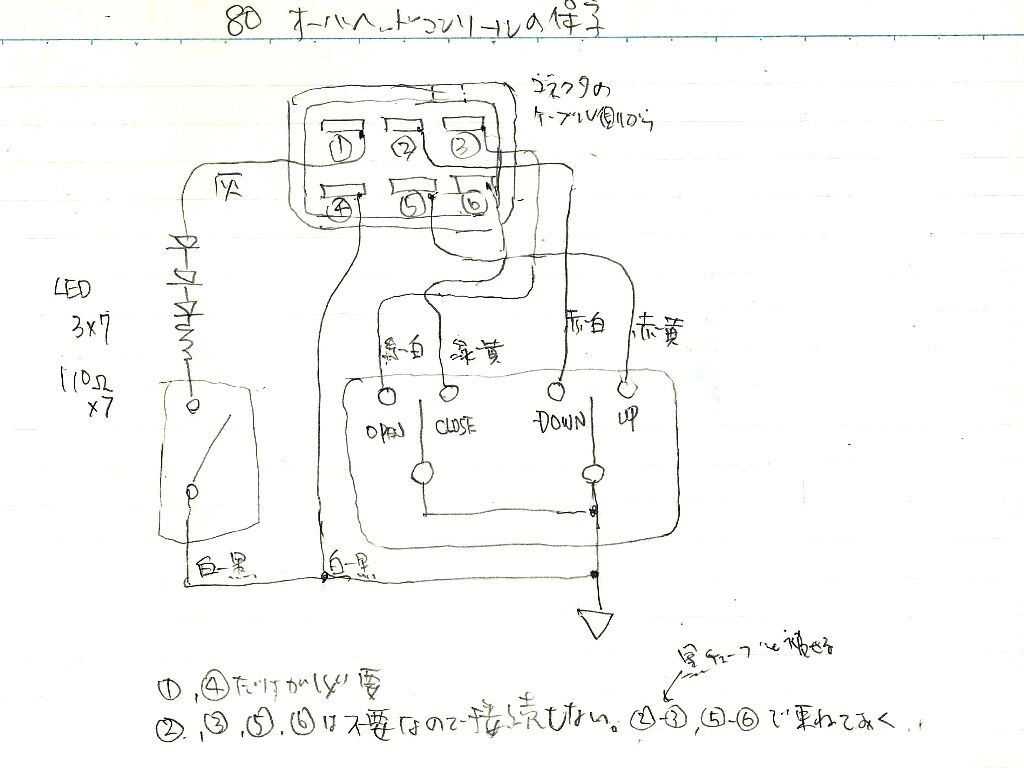 80 オーバーヘッドコンソールの様子
コネクタの
ケーブル側から
① ② ③
④ ⑤ ⑥
灰
LED
3×7
110Ω
×7
緑-白 緑-黄 赤-白 赤-黄
OPEN CLOSE DOWN UP
白-黒 白-黒
黒チューブを被せる
①,④だけが必要
②,③,⑤,⑥は不要なので接続しない。②-③,⑤-⑥で重ねておく